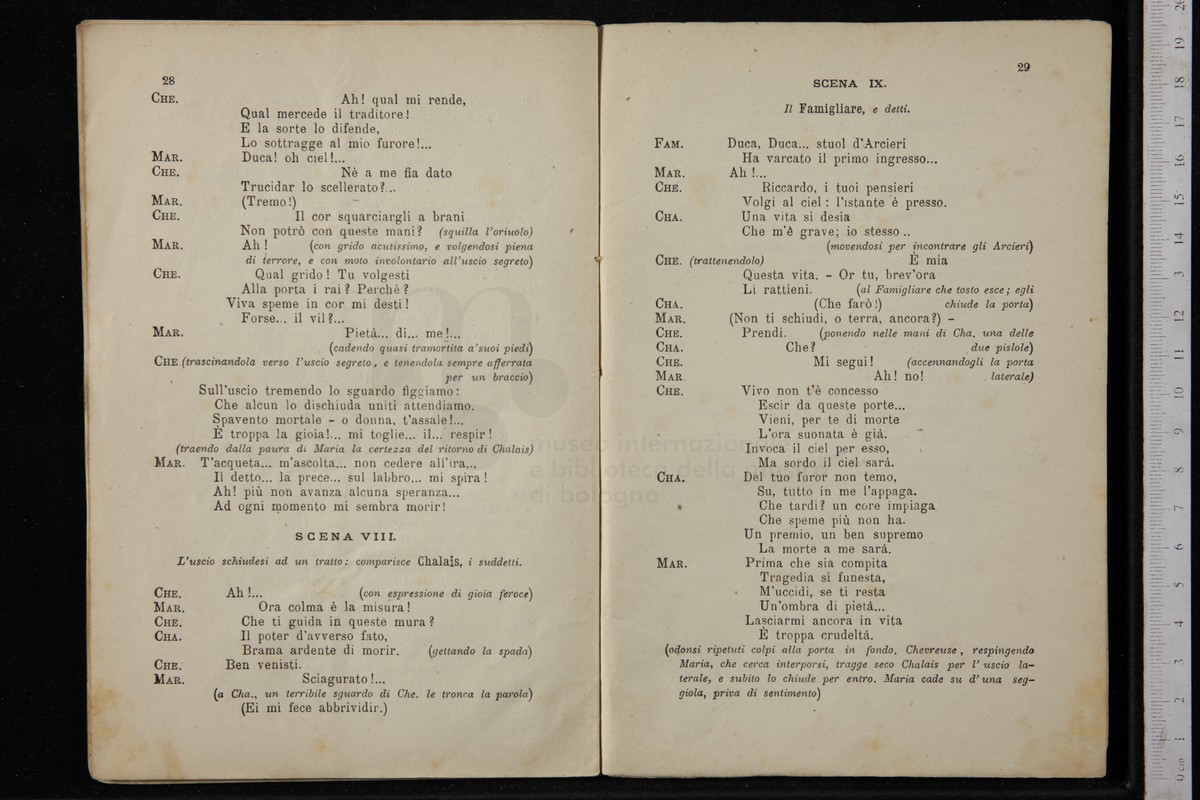 28
CHE. Ah! qual mi rende,
Qual mercede il traditore!
E la sorte lo difende,
Lo sottragge al mio furore!...
MAR. Duca! oh ciel!...
CHE. Nè a me fia dato
Trucidar lo scellerato?...
MAR. (Tremo!)
CHE. Il cor squarciargli a brani
Non potrò con queste mani? (squilla l'oriuolo)
MAR. Ah! (con grido acutissimo, e volgendosi piena
di terrore, e con moto involontario all'uscio segreto)
CHE. Qual grido! Tu volgesti
Alla porta i rai? Perchè?
Viva speme in cor mi desti!
Forse... il vil?...
MAR. Pietà... di... me!...
(cadendo quasi tramortita a'suoi piedi)
CHE. (trascinandola verso l'uscio segreto, e tenendola sempre afferrata
per un braccio)
Sull'uscio tremendo lo sguardo figgiamo:
Che alcun lo dischiuda uniti attendiamo.
Spavento mortale - o donna, t'assale!...
È troppa la gioia!... mi toglie... il... respir!
(traendo dalla paura di Maria la certezza del ritorno di Chalais)
MAR. T'acqueta... m'ascolta... non cedere all'ira...
Il detto... la prece... sul labbro... mi spira!
Ah! più non avanza alcuna speranza...
Ad ogni momento mi sembra morir!
SCENA VIII.
L'uscio schiudesi ad un tratto: comparisce Chalais, i suddetti.
CHE. Ah!... (con espressione di gioia feroce)
MAR. Ora colma è la misura!
CHE. Che ti guida in queste mura?
CHA. Il poter d'avverso fato,
Brama ardente di morir. (gettando la spada)
CHE. Ben venisti.
MAR. Sciagurato!...
(a Cha., un terribile sguardo di Che. le tronca la parola)
(Ei mi fece abbrividir.)
29
SCENA IX.
Il Famigliare, e detti.
FAM. Duca, Duca... stuol d'Arcieri
Ha varcato il primo ingresso...
MAR. Ah!...
CHE. Riccardo, i tuoi pensieri
Volgi al ciel: l'istante è presso.
CHA. Una vita si desia
Che m'è grave; io stesso..
(movendosi per incontrare gli Arcieri)
CHE. (trattenendolo) È mia
Questa vita. - Or tu, brev'ora
Li rattieni. (al Famigliare che tosto esce; egli
CHA. (Che farò!) chiude la porta)
MAR. (Non ti schiudi, o terra, ancora?) -
CHE. Prendi. (ponendo nelle mani di Cha. una delle
CHA. Che? due pistole)
CHE. Mi segui! (accennandogli la porta
MAR. Ah! no! laterale)
CHE. Vivo non t'è concesso
Escir da queste porte...
Vieni, per te di morte
L'ora suonata è già.
Invoca il ciel per esso,
Ma sordo il ciel sarà.
CHA. Del tuo furor non temo,
Su, tutto in me l'appaga.
Che tardi? un core impiaga
Che speme più non ha.
Un premio, un ben supremo
La morte a me sarà.
MAR. Prima che sia compita
Tragedia sì funesta,
M'uccidi, se ti resta
Un'ombra di pietà...
Lasciarmi ancora in vita
È troppa crudeltà.
(odonsi ripetuti colpi alla porta in fondo. Chevreuse, respingendo
Maria, che cerca interporsi, tragge seco Chalais per l'uscio la-
terale, e subito lo chiude per entro. Maria cade su d'una seg-
giola, priva di sentimento)
museo internazionale
e biblioteca della
di bologna
0 cm 1 2 3 4 5 6 7 8 9 10 11 12 13 14 15 16 17 18 19